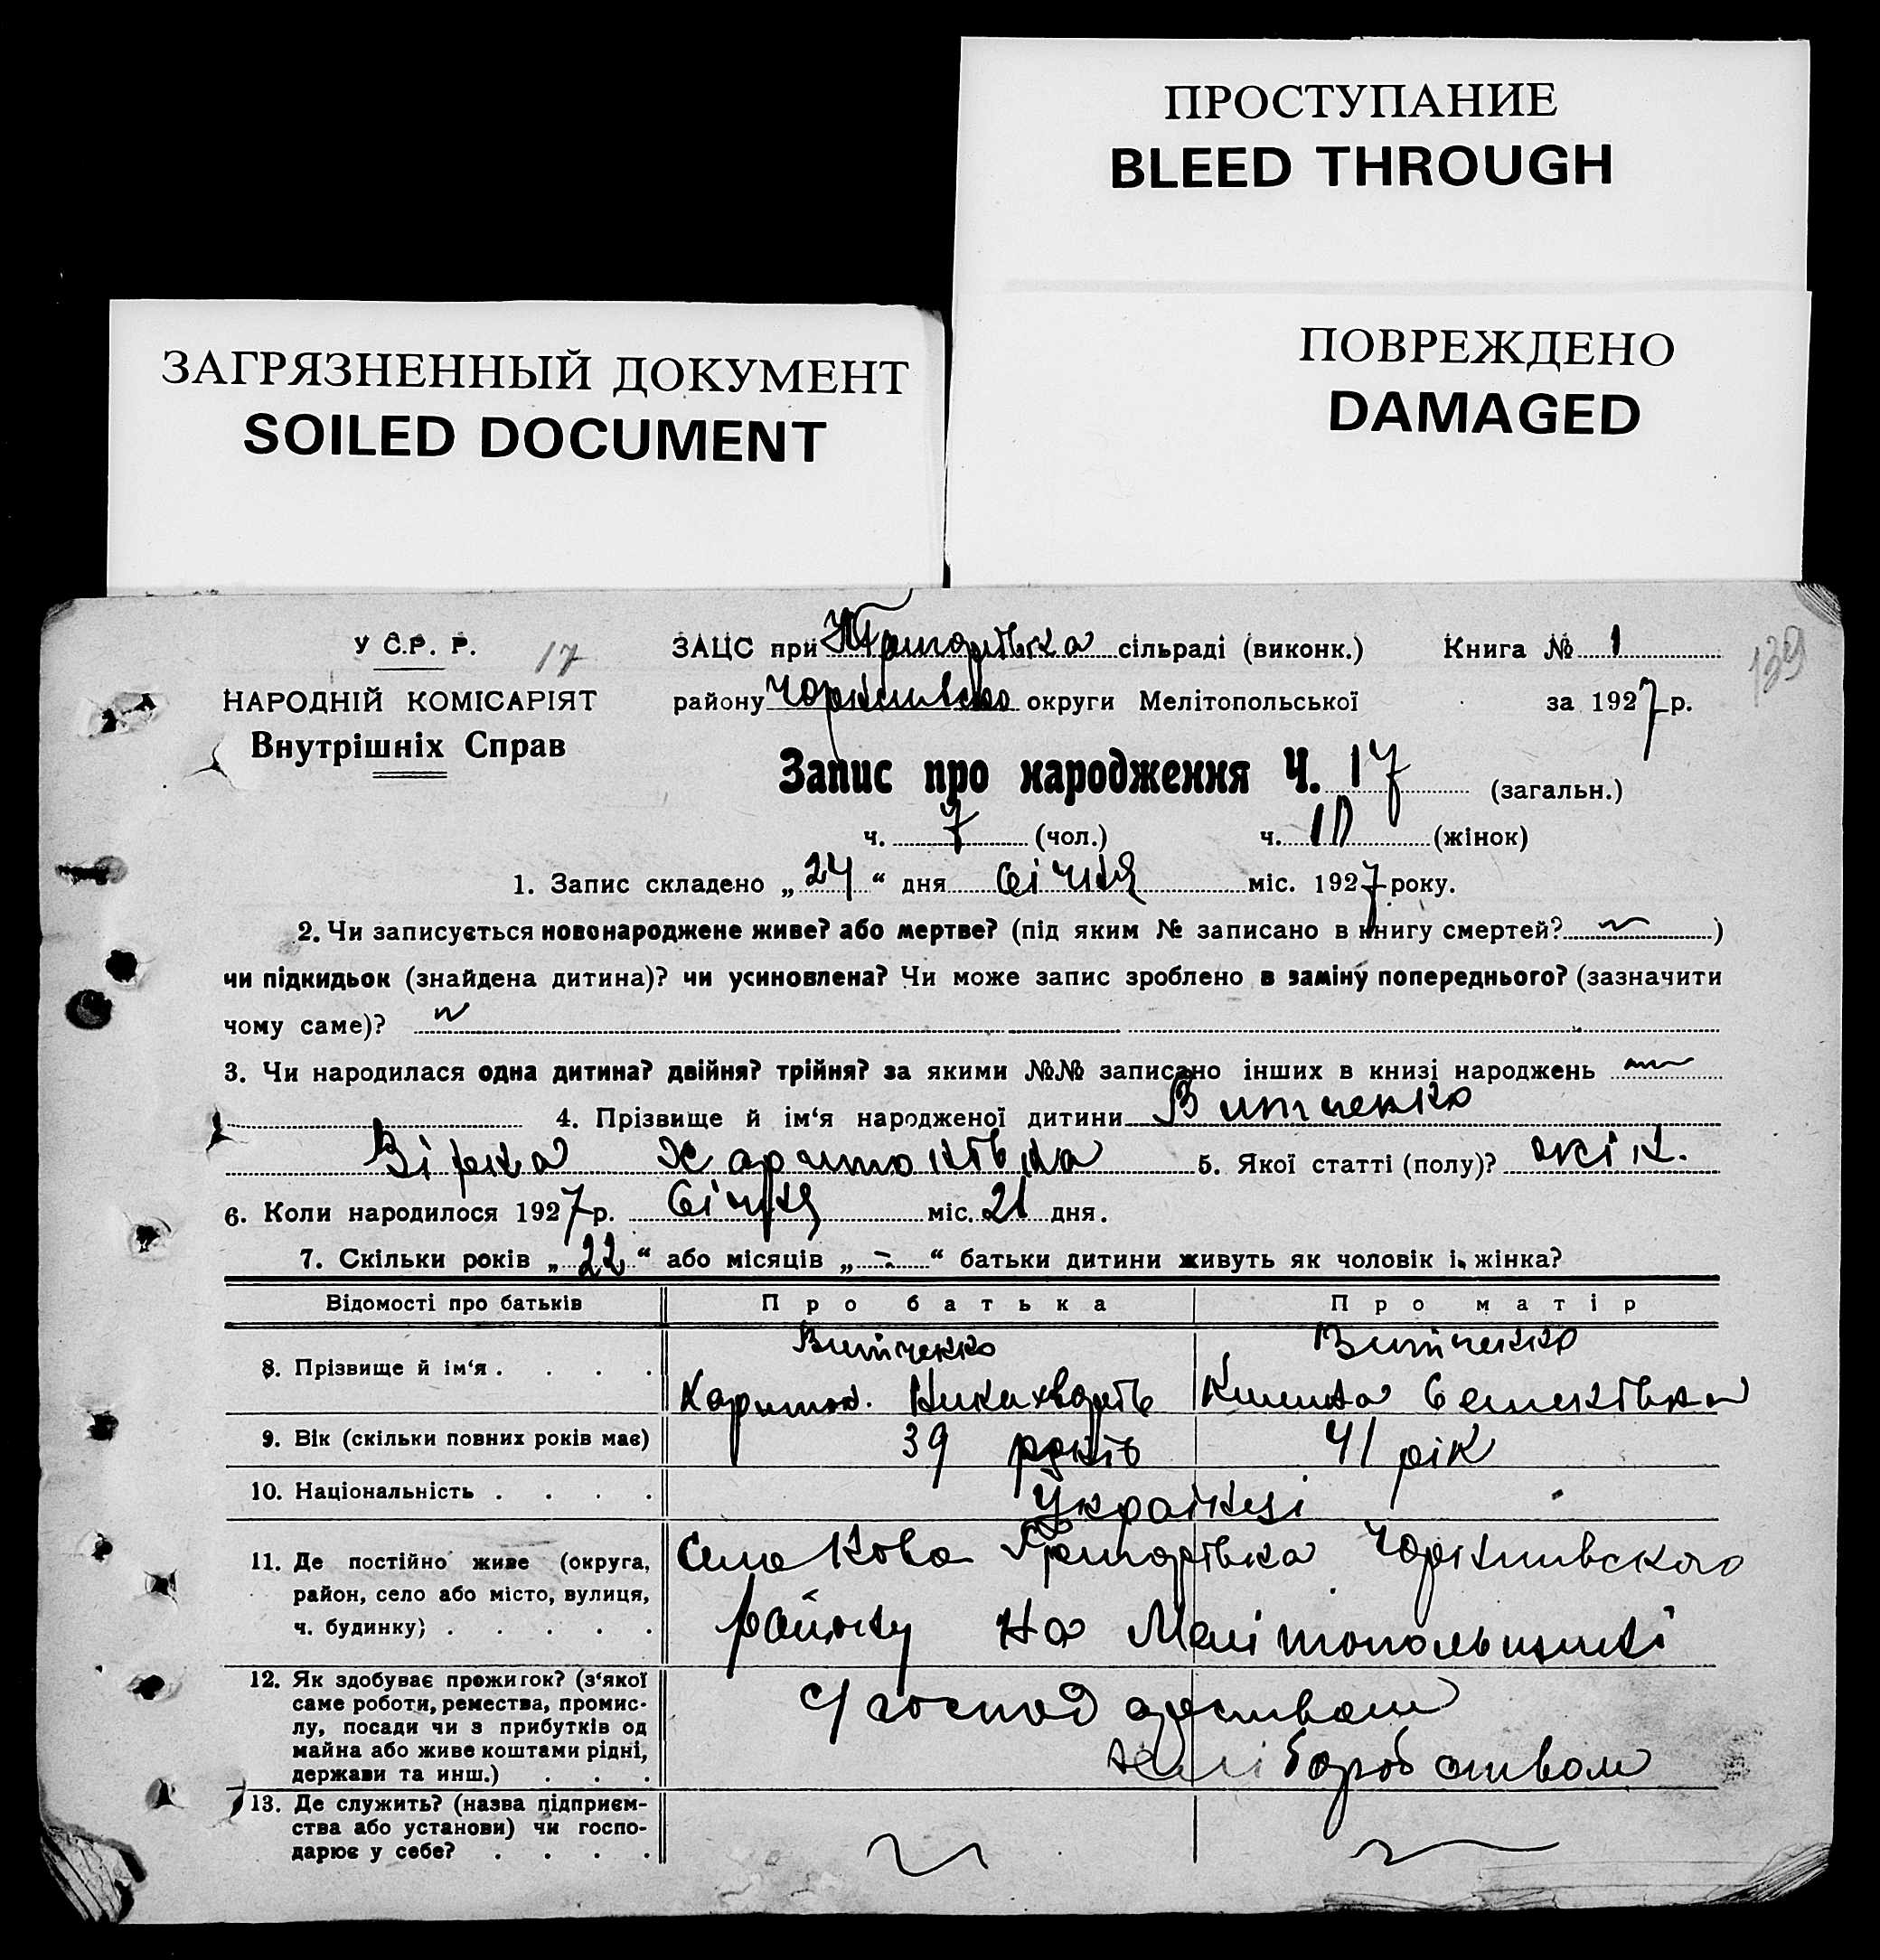 ПРОСТУПАНИЕ
BLEED THROUGH
ЗАГРЯЗНЕННЫЙ ДОКУМЕНТ
SOILED DOCUMENT
ПОВРЕЖДЕНО
DAMAGED
У С.Р.Р. 17
НАРОДНІЙ КОМІСАРІЯТ
Внутрішніх Справ
ЗАЦС при сільраді (виконк.) Книга № 1
139
району округи Мелітопольської за 1927 р.
Запис про народження Ч. 17 (загальн.)
ч. 7 (чол.) ч. 10 (жінок)
1. Запис складено „24“ дня січня міс. 1927 року.
2. Чи записується новонароджене живе? або мертве? (під яким № записано в книгу смертей? )
чи підкидьок (знайдена дитина)? чи усиновлена? Чи може запис зроблено в заміну попереднього? (зазначити
чому саме)?
3. Чи народилася одна дитина? двійня? трійня? за якими №№ записано інших в книзі народжень
4. Прізвище й ім‘я народженої дитини Витченко
Вірка Харитонівна 5. Якої статті (полу)? жін.
6. Коли народилося 1927 р. Січня міс. 21 дня.
7. Скільки років „22“ або місяців „-“ батьки дитини живуть як чоловік і жінка?
Відомості про батьків Про батька Про матір
8. Прізвище й ім‘я . . . . Витченко Витченко
Харитон. Семенівна
9. Вік (скільки повних років має) 39 років 41 рік
10. Національність . . . . Українці
11. Де постійно живе (округа, район, село або місто, вулиця, ч. будинку) . . . . . Село Ново Григорівка
району на Мелітопольщині
12. Як здобуває прожиток? (з‘якої
саме роботи, ремества, промис-
лу, посади чи з прибутків од
майна або живе коштами рідні,
держави та инш.) . . .
господарством
хліборобством
13. Де служить? (назва підприєм-
ства або установи) чи госпо-
дарює у себе? . . . .